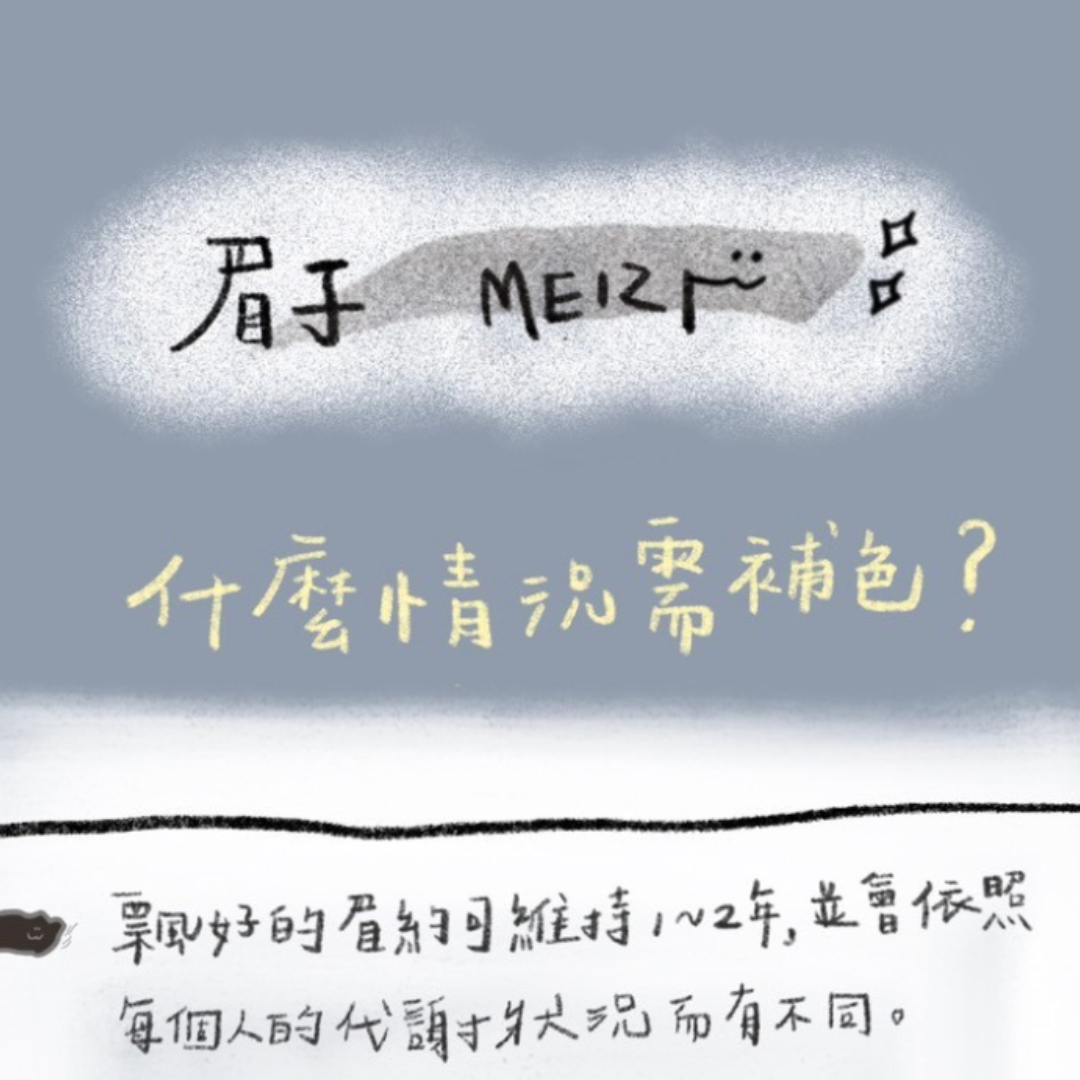 眉子 MEIZI
什麼情況需補色？
飄好的眉約可維持1~2年,並會依照
每個人的代謝狀況而有不同。